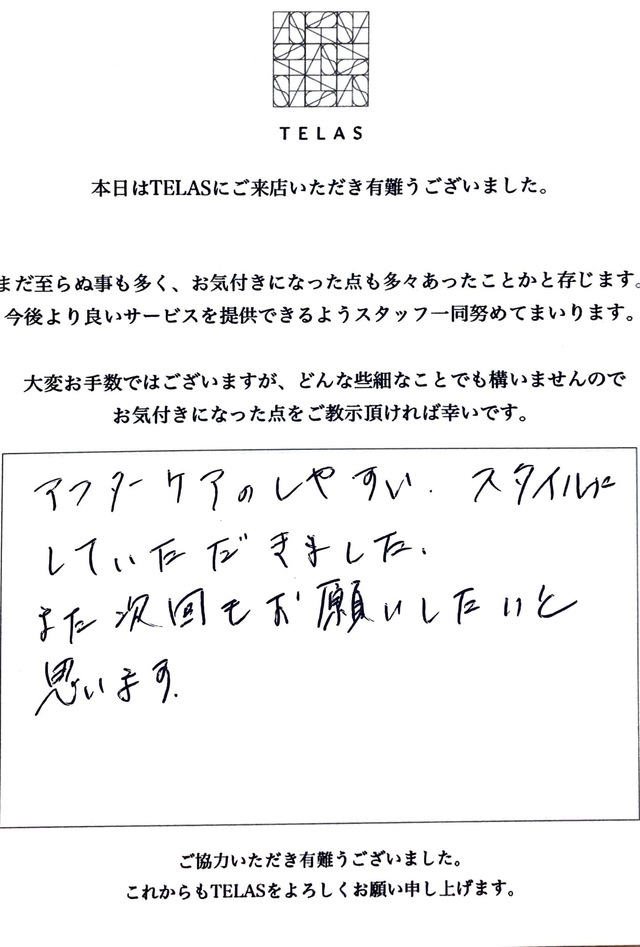 TELAS
本日はTELASにご来店いただき有難うございました。
まだ至らぬ事も多く、お気付きになった点も多々あったことかと存じます。
今後より良いサービスを提供できるようスタッフ一同努めてまいります。
大変お手数ではございますが、どんな些細なことでも構いませんので
お気付きになった点をご教示頂ければ幸いです。
アフターケアのしやすい、スタイルに
していただきました。
また次回もお願いしたいと
思います。
ご協力いただき有難うございました。
これからもTELASをよろしくお願い申し上げます。